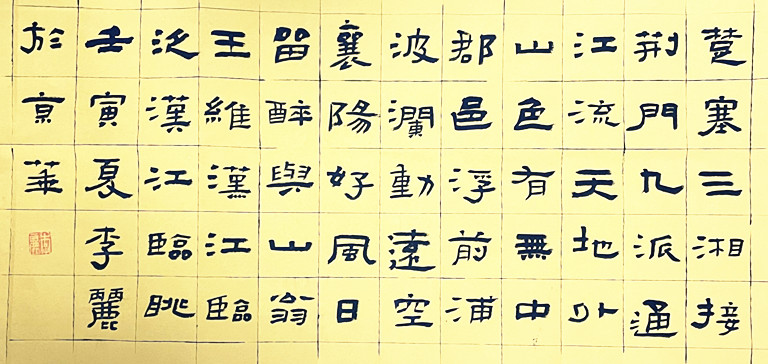 楚塞三湘接
荆門九派通
江流天地外
山色有無中
郡邑浮前浦
波瀾動遠空
襄陽好風日
留醉與山翁
王維漢江臨
泛漢江臨眺
壬寅夏李麗
於京華